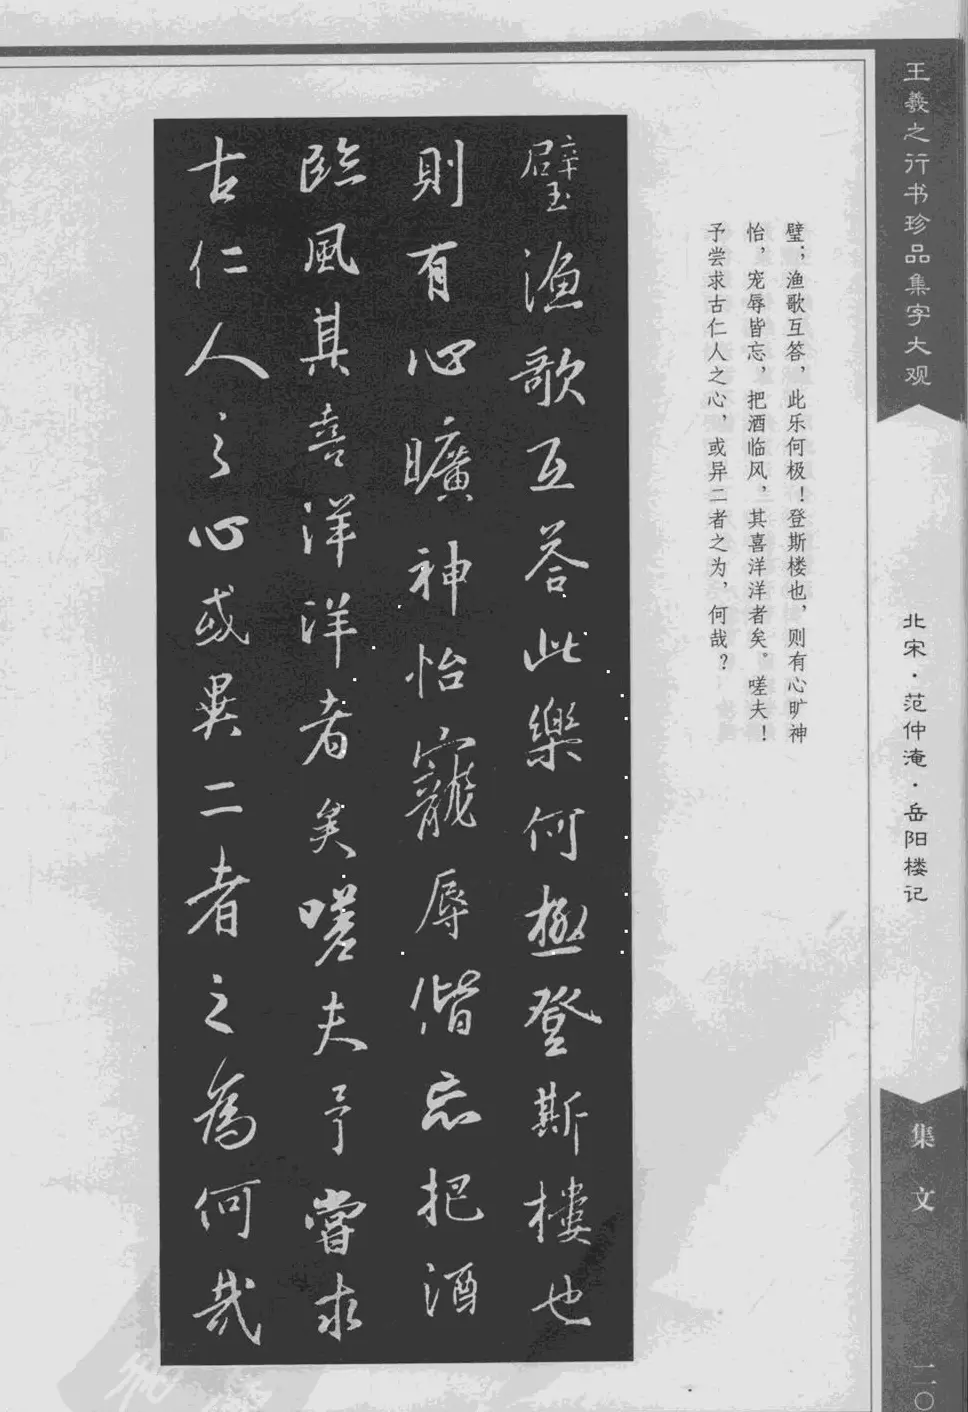 王羲之行书珍品集字大观
北宋·范仲淹·岳阳楼记
集文
二〇
璧；渔歌互答，此乐何极！登斯楼也，则有心旷神
怡，宠辱皆忘，把酒临风，其喜洋洋者矣。嗟夫！
予尝求古仁人之心，或异二者之为，何哉？
璧渔歌互答此樂何極登斯樓也
則有心曠神怡寵辱偕忘把酒
臨風其喜洋洋者矣嗟夫予嘗求
古仁人之心或異二者之為何哉